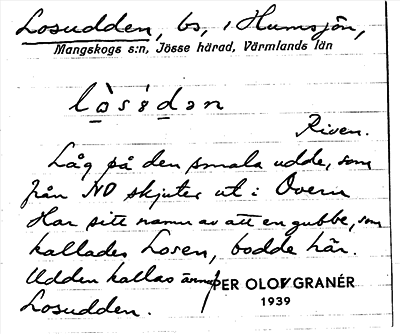 Losudden, bs, i Humsjön,
Mangskogs s:n, Jösse härad, Värmlands län
Riven.
Låg på den smala udde, som
från NO skjuter ut i Övern
Har sitt namn av att en gubbe, som
kallades Losen, bodde här.
Udden kallas även
Losudden.
PER OLOV GRANÉR
1939